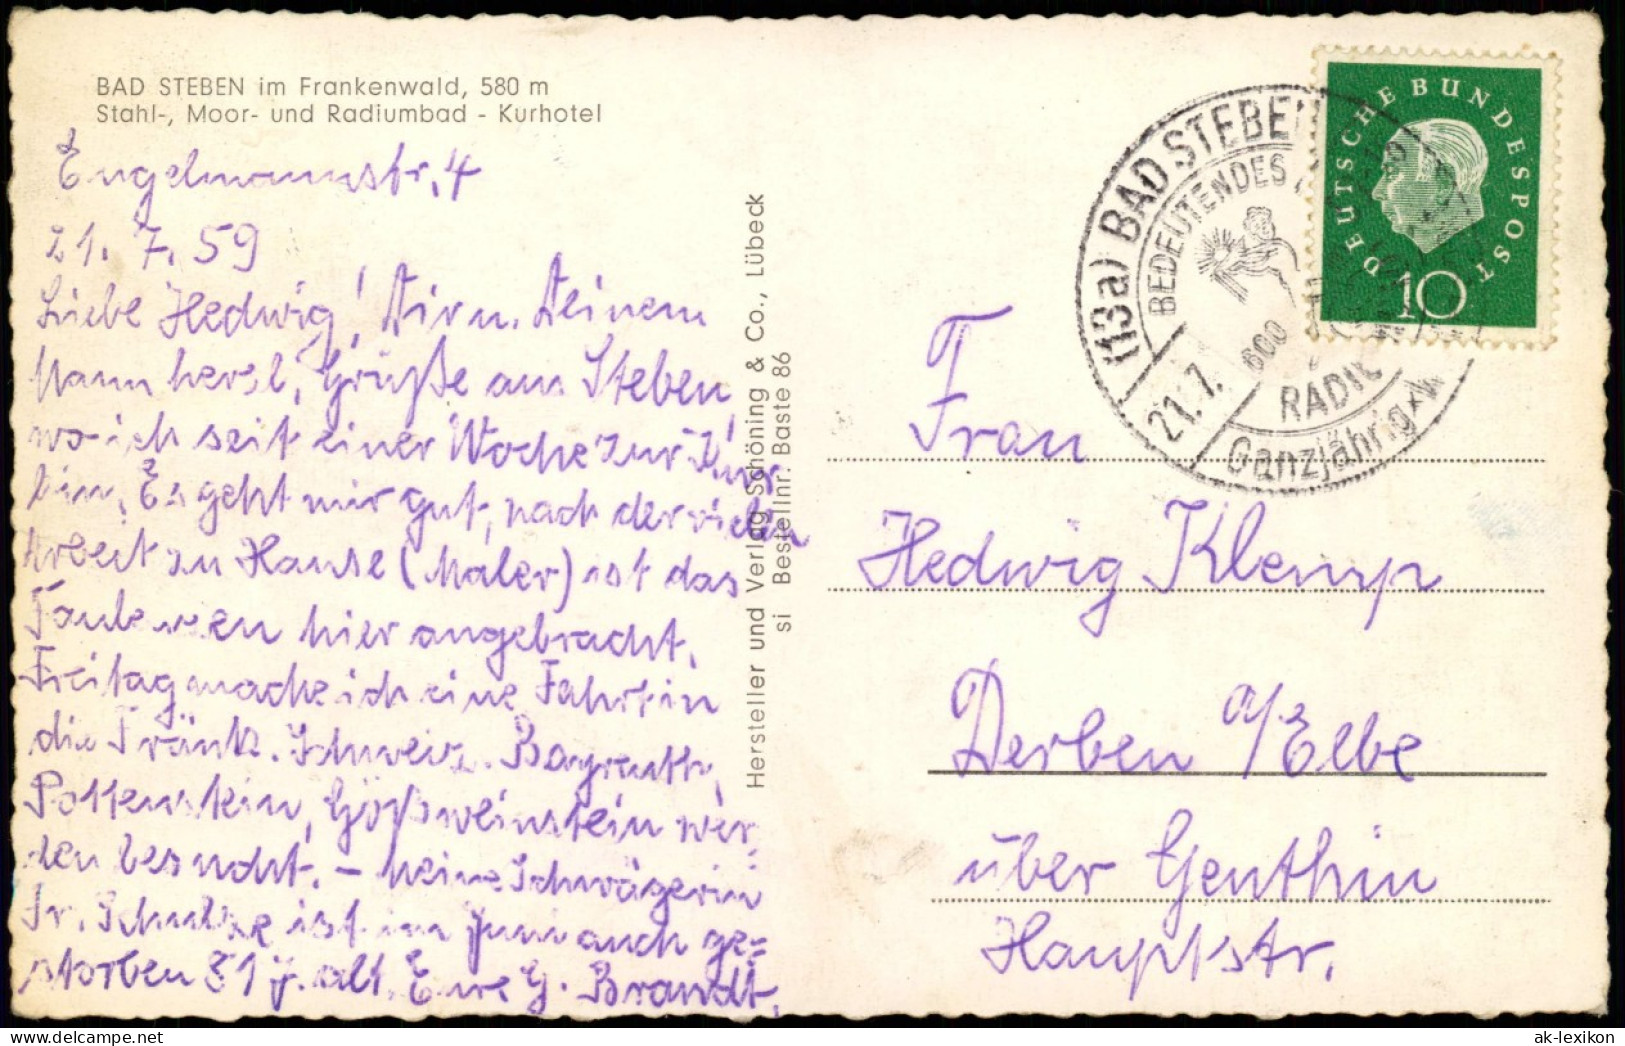 BAD STEBEN im Frankenwald, 580 m
Stahl-, Moor- und Radiumbad - Kurhotel
Engelmannstr. 4
21. 7. 59
Liebe Hedwig! Dir u. Deinem
Mann herzl. Grüße aus Steben,
wo ich seit einer Woche zur Kur
bin. Es geht mir gut, nach der vielen
Arbeit zu Hause (Maler) ist das
Faulenzen hier angebracht.
Freitag mache ich eine Fahrt in
die Fränk. Schweiz. Bayreuth,
Pottenstein, Gößweinstein wer
den besucht. – Meine Schwägerin
Fr. Schulze ist im Juni auch ge=
storben 81 J. alt. Eure G. Brandt.
Hersteller und Verlag Schöning & Co., Lübeck
si Bestellnr. Baste 86
(13a) BAD STEBEN
BEDEUTENDES
600
RADIU
21.7.
Ganzjährig
DEUTSCHE BUNDESPOST
10
Frau
Hedwig Klemp
Derben a/Elbe
über Genthin
Hauptstr.
ak-lexikon